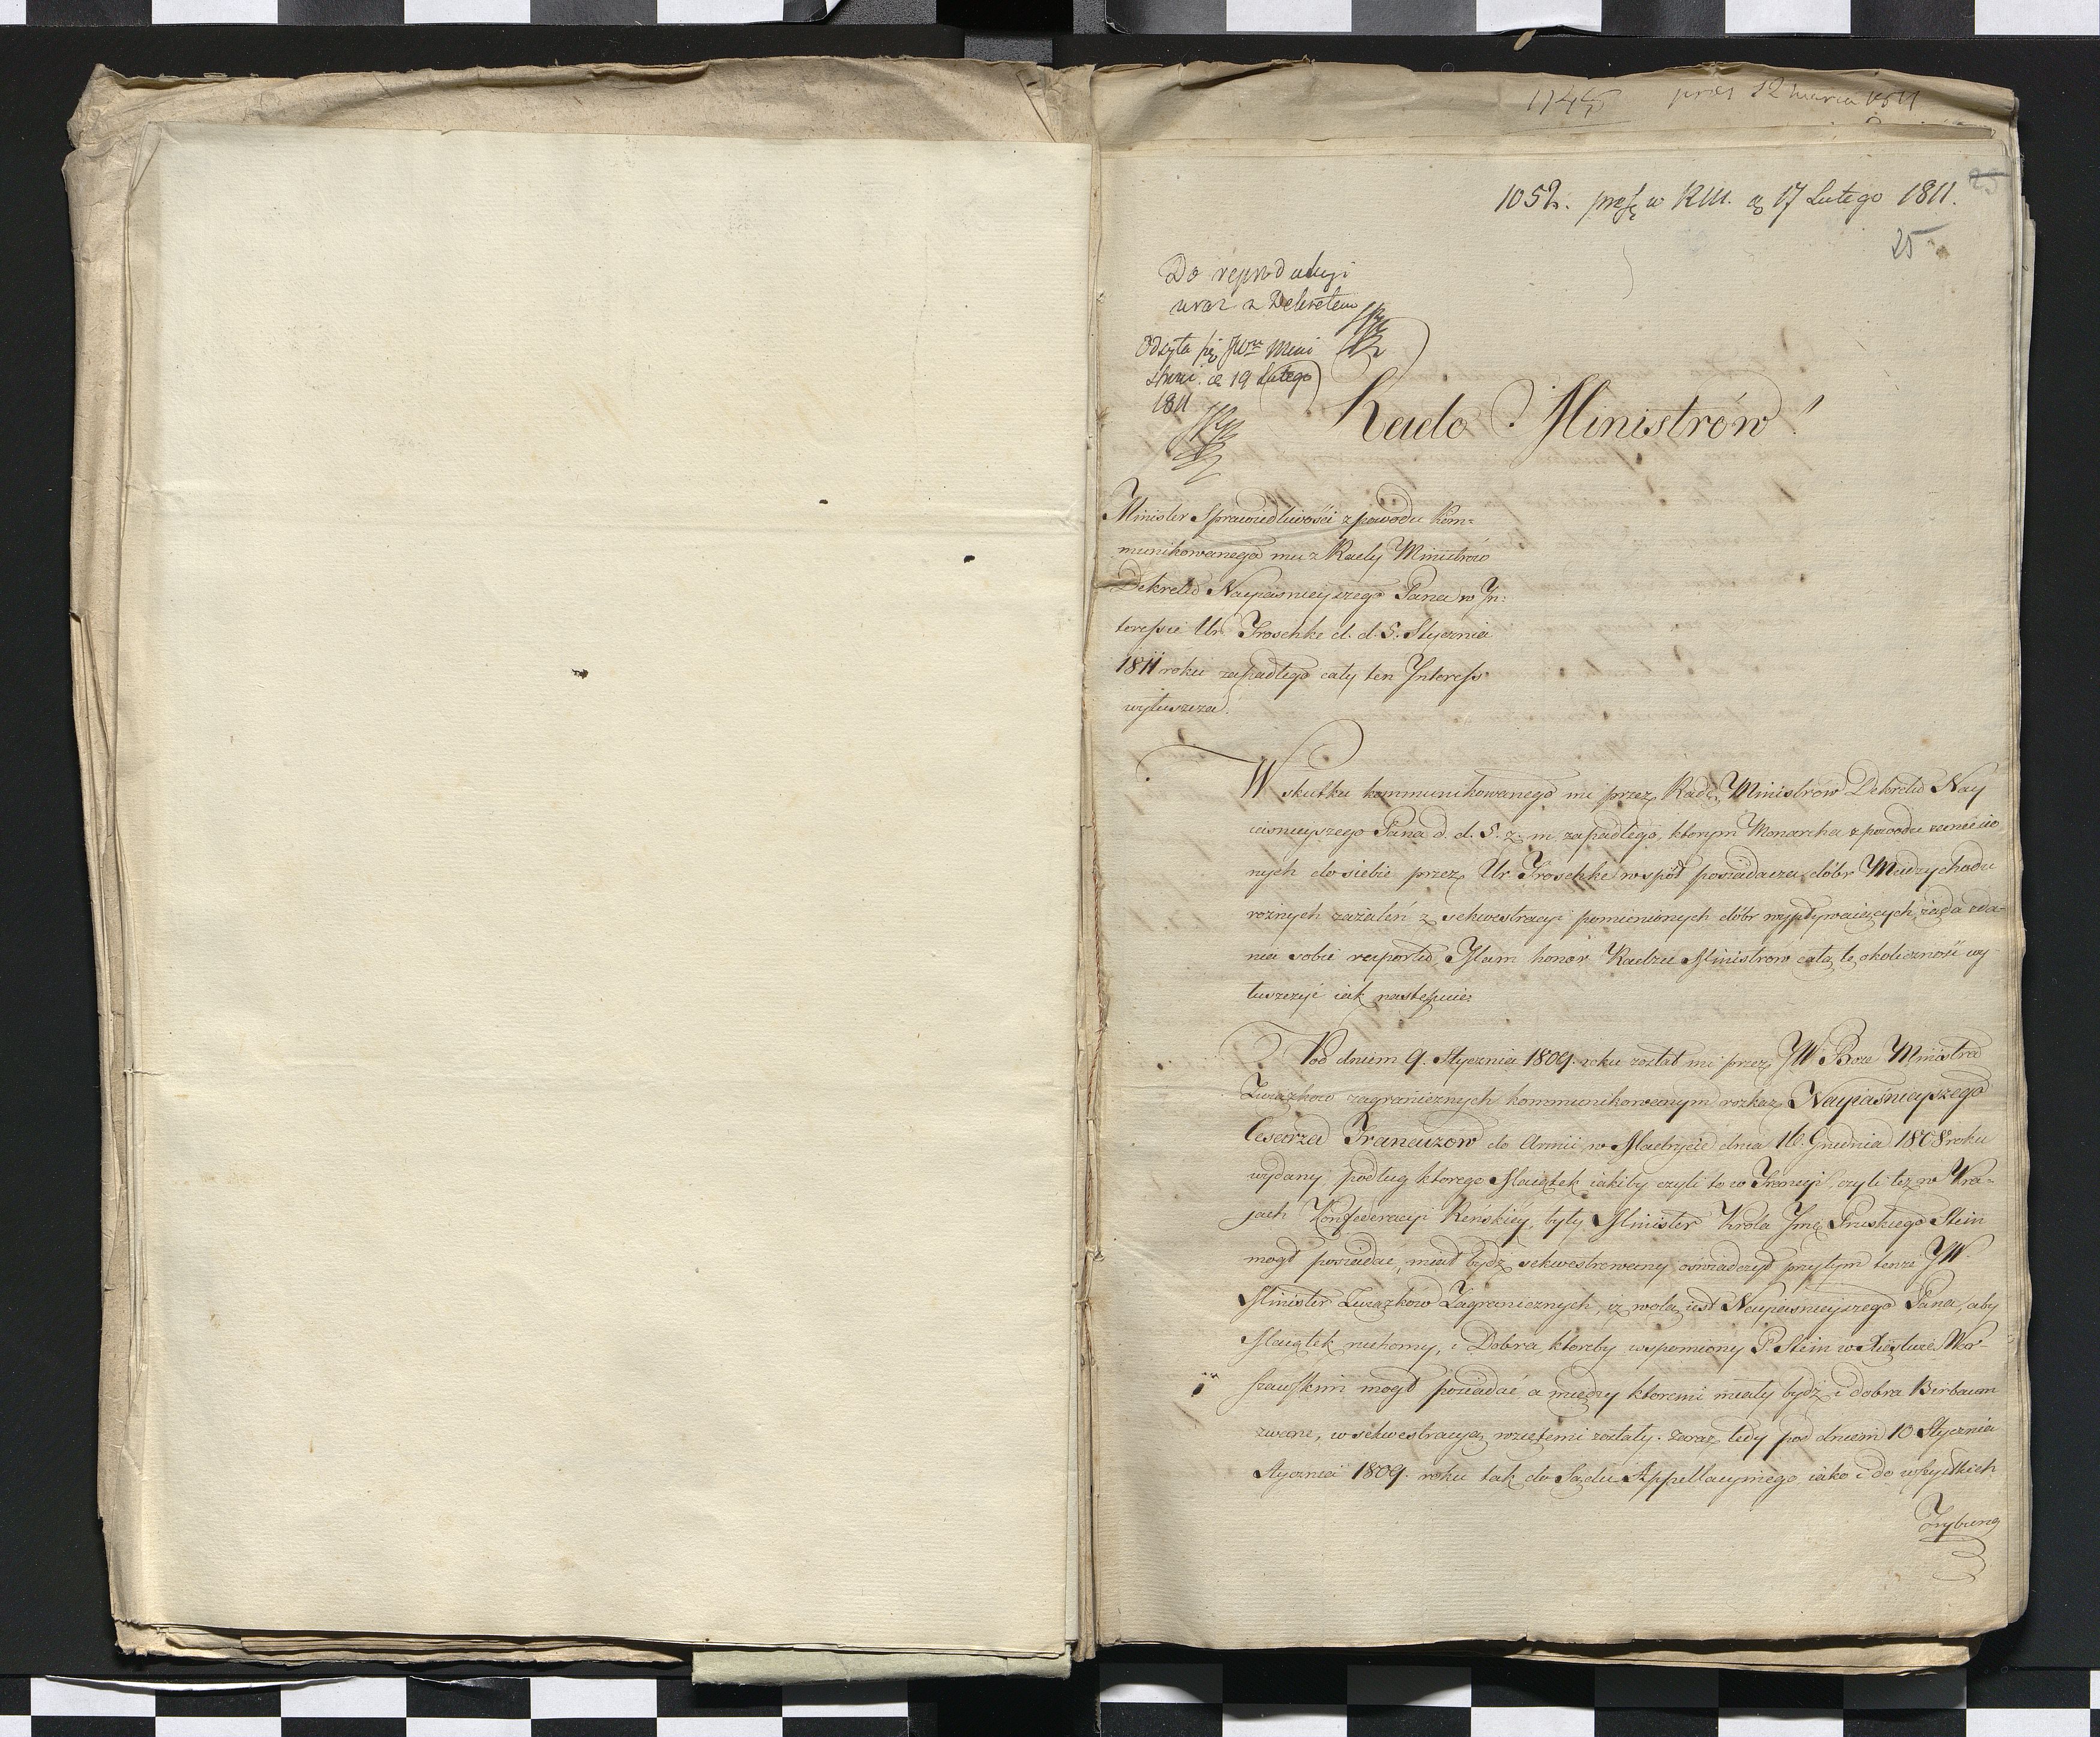 1052. w RM. 17 Lutego 1811.
25
Do reprodukcyi
wraz z Dekretem
Odsyła się Mini
19 Lutego
1811
Rado Ministrów!
Minister Sprawiedliwości z powodu kom=
munikowanego mu z Rady Ministrów
Dekretu Nayiasnieyszego Pana w In:
teressie Ur Troschke d. d. 5. Stycznia
1811 roku zapadłego cały ten Interess
wyłuszcza.
W skutku kommunikowanego mi przez Radę Ministrów Dekretu Nay
iasnieyszego Pana d. d. 5. z. m. zapadłego, ktorym Monarcha z powodu zaniesio
nych do siebie przez Ur Troschke współ posiadacza dóbr Miedzychodu
rożnych zażaleń z sekwestracyi pomienionych dóbr wypływaiących, żąda zda
nia sobie raportu, Mam honor Radzie Ministrow całą tę okoliczność wy
łuszczyć iak następuie:
Pod dniem 9. Stycznia 1809. roku został mi przez JW Boze Ministra
Związkow zagranicznych kommunikowanym rozkaz Nayiaśnieyszego
Cesarza Francuzów do Armii w Madrycie dnia 16. Grudnia 1808 roku
wydany, podług ktorego Maiątek iakiby czyli to w Francyi, czyli też w Kra=
jach Konfederacyi Reńskiéy, były Minister Króla Jmę Pruskiego Stein
mogł posiadać, miał bydź sekwestrowany, oświadczył przytym tenże JW
Minister Związków Zagranicznych, iż wolą iest Nayiasnieyszego Pana, aby
Maiątek ruchomy, i Dobra, ktoreby wspomiony P. Stein w Xięstwie War=
szawskim mogł posiadać, a między ktoremi miały bydź i dobra Birbaum
zwane, w sekwestracyą wziętemi zostały. Zaraz tedy pod dniem 10 Stycznia
Stycznia 1809. roku tak do Sądu Appellacyinego iako i do wszystkich
Trybuna